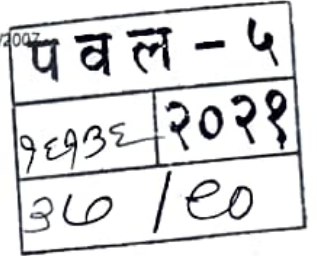 /2007
प व ल - ५
१६१३६ २०२१
३७ / ९०